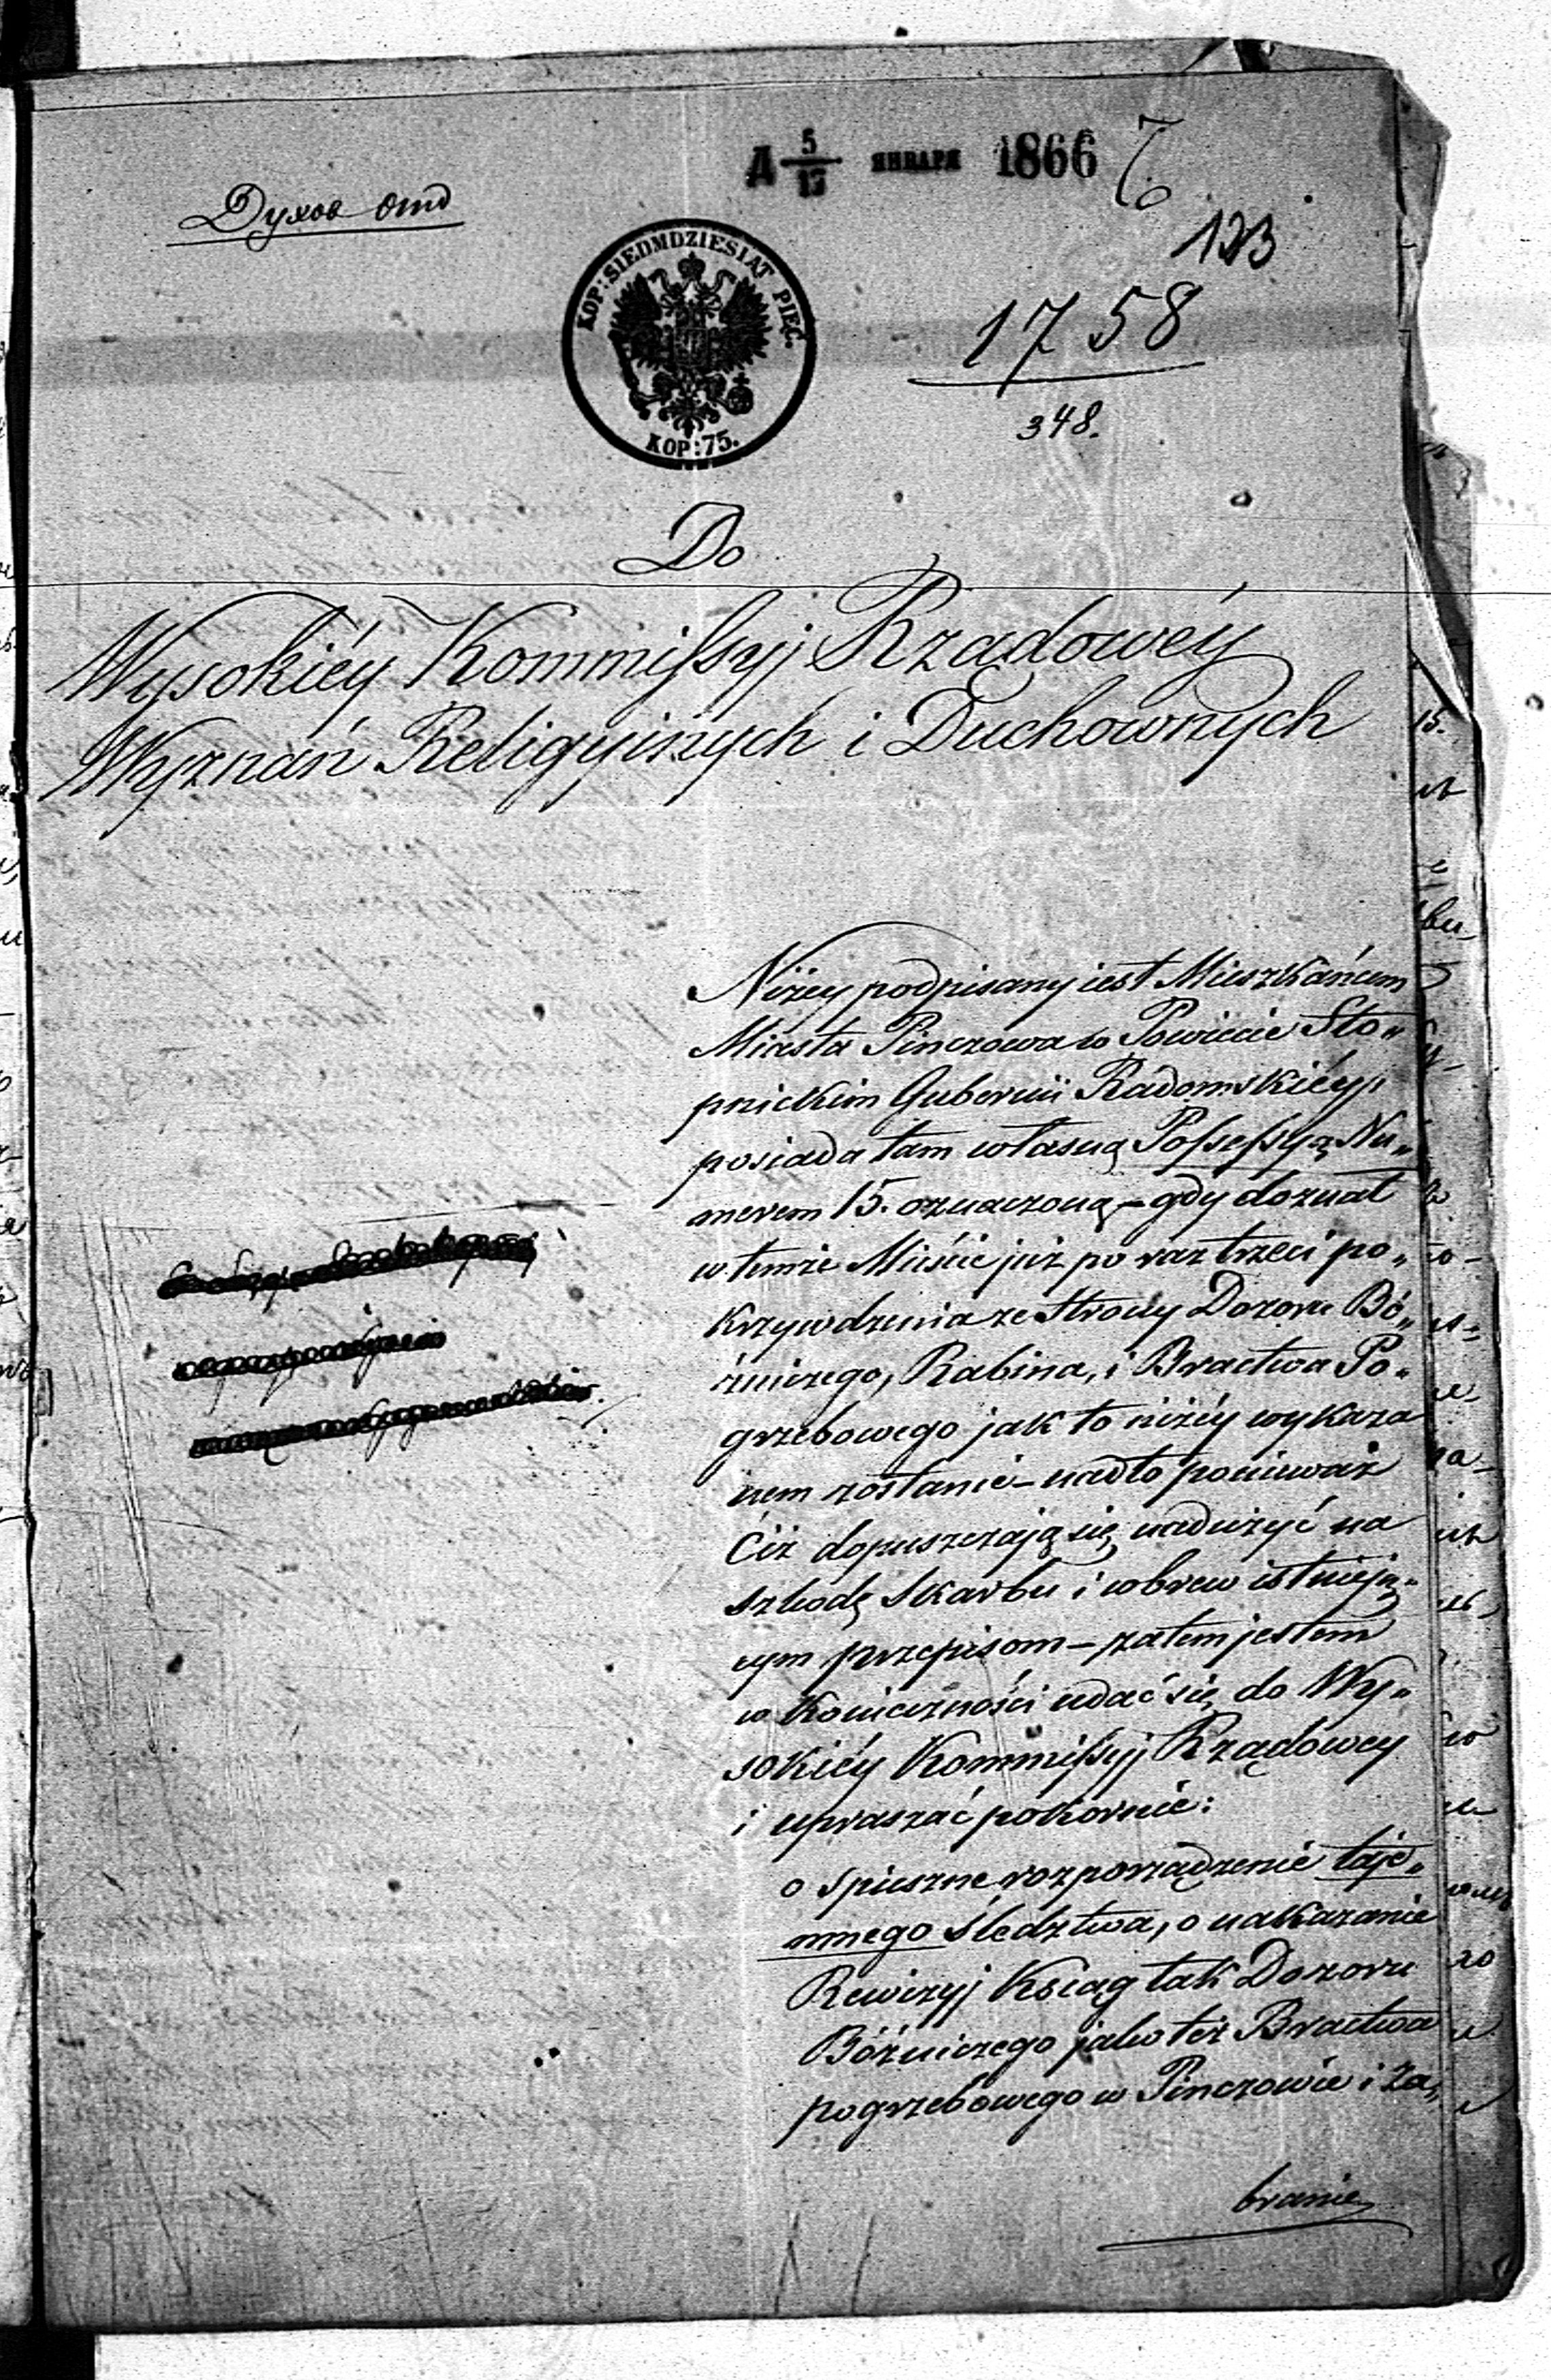 Д 5/17 ЯНВАРЯ 1866
Духов Отд
123
KOP: SIEDMDZIESIAT PIĘĆ.
KOP: 75.
1758
348.
Do
Wysokiéy Kommissyj Rządowéy
Wyznań Religyinych i Duchownych
Niżey podpisany iest Mieszkańcem
Miasta Pinczowa w Powiecie Sto„
pnickim Gubernii Radomskiéy,
posiada tam własną Possessyą Nu„
merem 15. oznaczoną – gdy doznał
w temże Mieście już po raz trzeci po„
krzywdzenia ze strony Dozoru Bó„
źniczego, Rabina, i Bractwa Po„
grzebowego jak to niżéy wykaza
nem zostanie – nadto ponieważ
Ciż dopuszczają się nadużyć na
szkodę Skarbu i wbrew istnieją„
cym przepisom – zatem jestem
w Konieczności udać się do Wy„
sokiéy Kommissyj Rządowey
i upraszać pokornie:
o spieszne rozporządzenie taje„
mnego śledztwa, o nakazanie
Rewizyj Ksiąg tak Dozoru
Bóźniczego jako też Bractwa
pogrzebowego w Pinczowie i Za„
branie